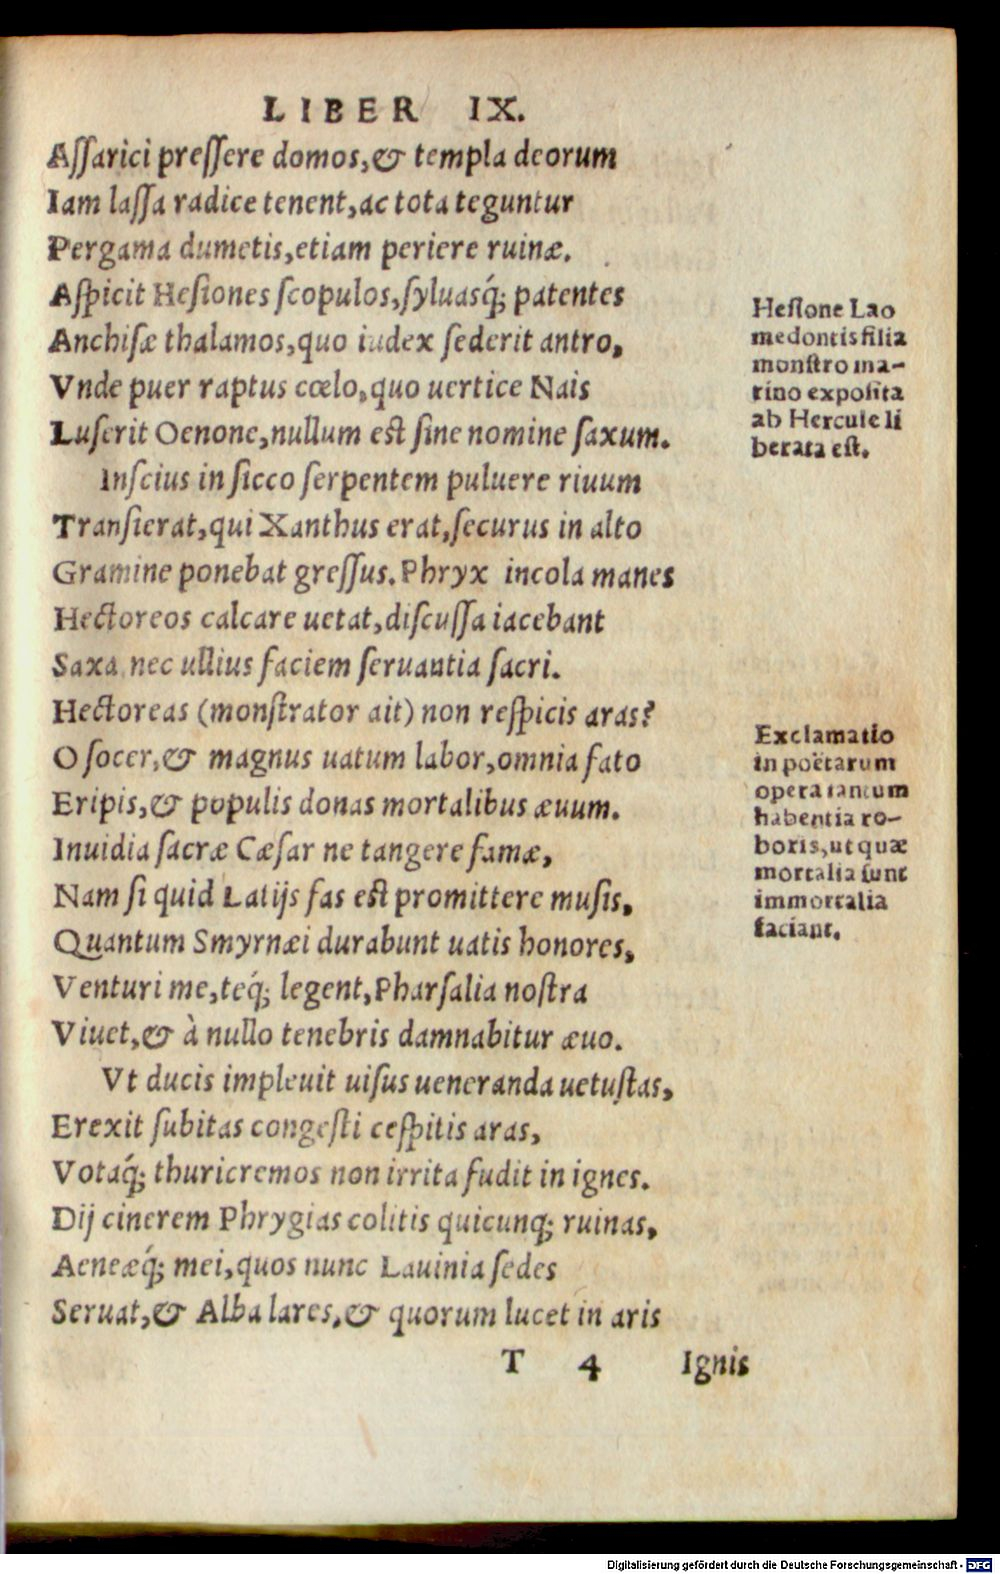 LIBER IX.
Assarici pressere domos,& templa deorum
Iam lassa radice tenent,ac tota teguntur
Pergama dumetis,etiam periere ruinæ.
Aspicit Hesiones scopulos,syluasq́; patentes
Anchisæ thalamos,quo iudex sederit antro,
Vnde puer raptus cœlo,quo uertice Nais
Luserit Oenone,nullum est sine nomine saxum.
Inscius in sicco serpentem puluere riuum
Transierat,qui Xanthus erat,securus in alto
Gramine ponebat gressus. Phryx incola manes
Hectoreos calcare uetat,discussa iacebant
Saxa nec ullius faciem seruantia sacri.
Hectoreas (monstrator ait) non respicis aras?
O socer,& magnus uatum labor,omnia fato
Eripis,& populis donas mortalibus æuum.
Inuidia sacræ Cæsar ne tangere famæ,
Nam si quid Latijs fas est promittere musis,
Quantum Smyrnæi durabunt uatis honores,
Venturi me,teq́; legent,Pharsalia nostra
Viuet,& à nullo tenebris damnabitur æuo.
Vt ducis impleuit uisus ueneranda uetustas,
Erexit subitas congesti cespitis aras,
Votaq́; thuricremos non irrita fudit in ignes.
Dij cinerem Phrygias colitis quicunq; ruinas,
Aeneæq́; mei,quos nunc Lauinia sedes
Seruat,& Alba lares,& quorum lucet in aris
T 4 Ignis
Hesione Lao
medontis filia
monstro ma-
rino exposita
ab Hercule li
berata est.
Exclamatio
in poëtarum
opera tantum
habentia ro-
boris,ut quæ
mortalia sunt
immortalia
faciant.
Digitalisierung gefördert durch die Deutsche Forschungsgemeinschaft - DFG